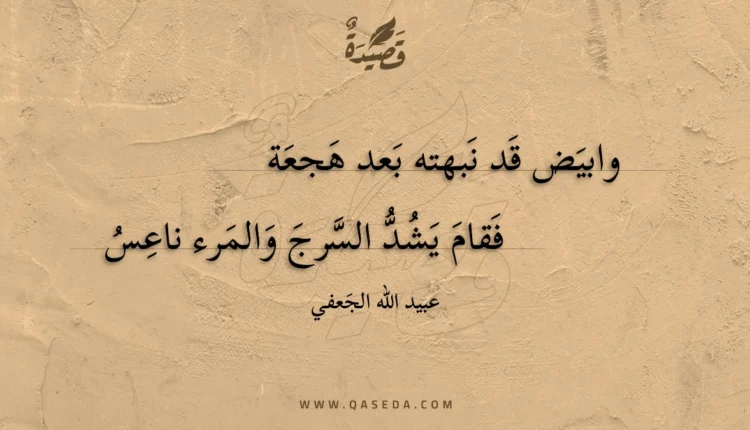 قَصِيدَةٌ
وابيَض قَد نَبهته بَعد هَجعَة
فَقامَ يَشُدُّ السَّرجَ وَالمَرء ناعِسُ
عبيد الله الجَعفي
WWW.QASEDA.COM